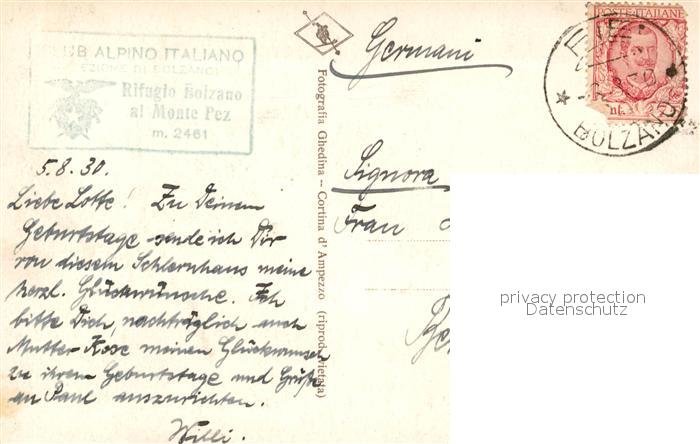 CLUB ALPINO ITALIANO
SEZIONE DI BOLZANO
Rifugio Bolzano
al Monte Pez
m. 2461
Germani
POSTE ITALIANE
BOLZANO
Fotografia Ghedina – Cortina d'Ampezzo (riprod. vietata)
Signora
Frau
5.8.30.
Liebe Lotte! Zu Deinem
Geburtstage sende ich Dir
von diesem Schlernhaus meine
herzl. Glückwünsche. Ich
bitte Dich, nachträglich auch
Mutter Rose meinen Glückwunsch
zu ihrem Geburtstage und Grüße
an Paul auszurichten.
Willi.
privacy protection
Datenschutz